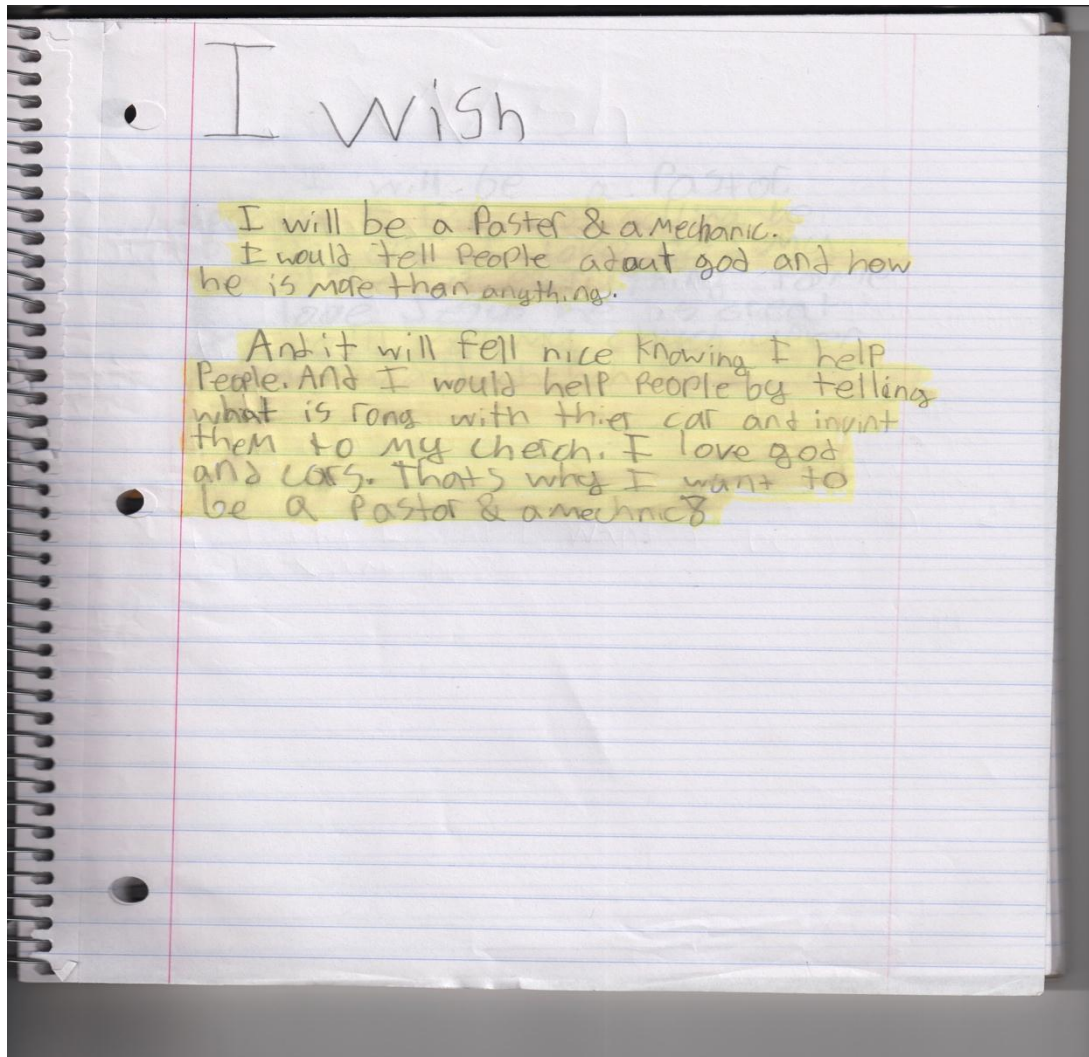 I wish
I will be a Paster & a Mechanic.
I would tell People adout god and how
he is more than angthing.
And it will fell nice knowing I help
People. And I would help People by telling
what is rong with thier car and invint
them to my cherch. I love god
and cars. Thats why I want to
be a Pastor & a mechnic